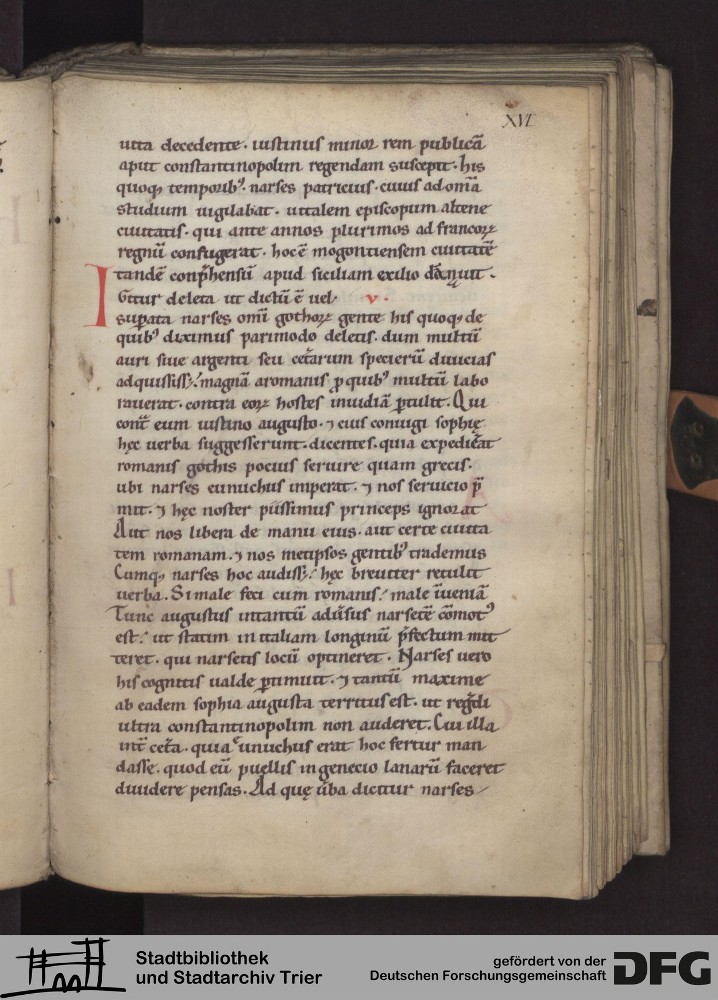 XVI
uita decedente. iustinus minor rem publicā
aput constantinopolim regendam suscepit. his
quoq; temporib; narses patricius. cuius ad om̄a
studium uigilabat. uitalem episcopum altene
ciuitatis. qui ante annos plurimos ad francoꝝ
regnū confugerat. hoc ē mogontiensem ciuitatē
tandē conp̄hensū apud siciliam exilio dāpnauit.
Igitur deleta ut dictū ē uel. v.
suꝑata narses om̄i gothoꝝ gente his quoq; de
quib; diximus pari modo deletis. dum multū
auri siue argenti seu cet̄arum specierū diuicias
adquisiss; magnā a romanis ꝓ quib; multū labo
rauerat. contra eoꝝ hostes inuidiā ꝑtulit. Qui
cont̄ eum iustino augusto. ⁊ eius coniugi sophię
hęc uerba suggesserunt. dicentes. quia expedierat
romanis gothis pocius seruire quam grecis.
ubi narses eunuchus imperat. ⁊ nos seruicio p̄
mit. ⁊ hęc noster piissimus princeps ignorat
Aut nos libera de manu eius. aut certe ciuita
tem romanam. ⁊ nos metipsos gentib; trademus
Cumq; narses hoc audiss; hęc breuiter retulit
uerba. Si male feci cum romanis. male īueniā
Tunc augustus in tantū adūsus narsetē cōmot;
est. ut statim in italiam longinū p̄fectum mit
teret. qui narsetis locū optineret. Narses uero
his cognitis ualde ꝑtimuit. ⁊ tantū maxime
ab eadem sophia augusta territus est. ut reḡdi
ultra constantinopolim non auderet. Cui illa
int̄ cet̄a. quia eunuchus erat hoc fertur man
dasse. quod eū puellis in genecio lanarū faceret
diuidere pensas. Ad quę ūba dicitur narses
Stadtbibliothek
und Stadtarchiv Trier
gefördert von der
Deutschen Forschungsgemeinschaft
DFG